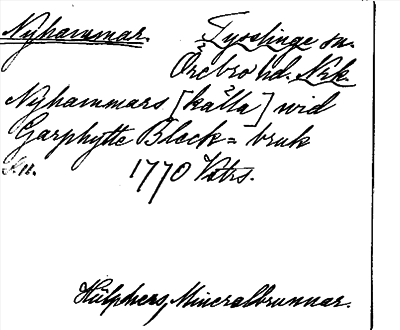 Nyhammar. Tysslinge sn.
Örebro hd. Nrk
Nyhammars [källa] wid
Garphytte Bleck=bruk
S. 11. 1770 Vstrs.
Hülphers, Mineralbrunnar.